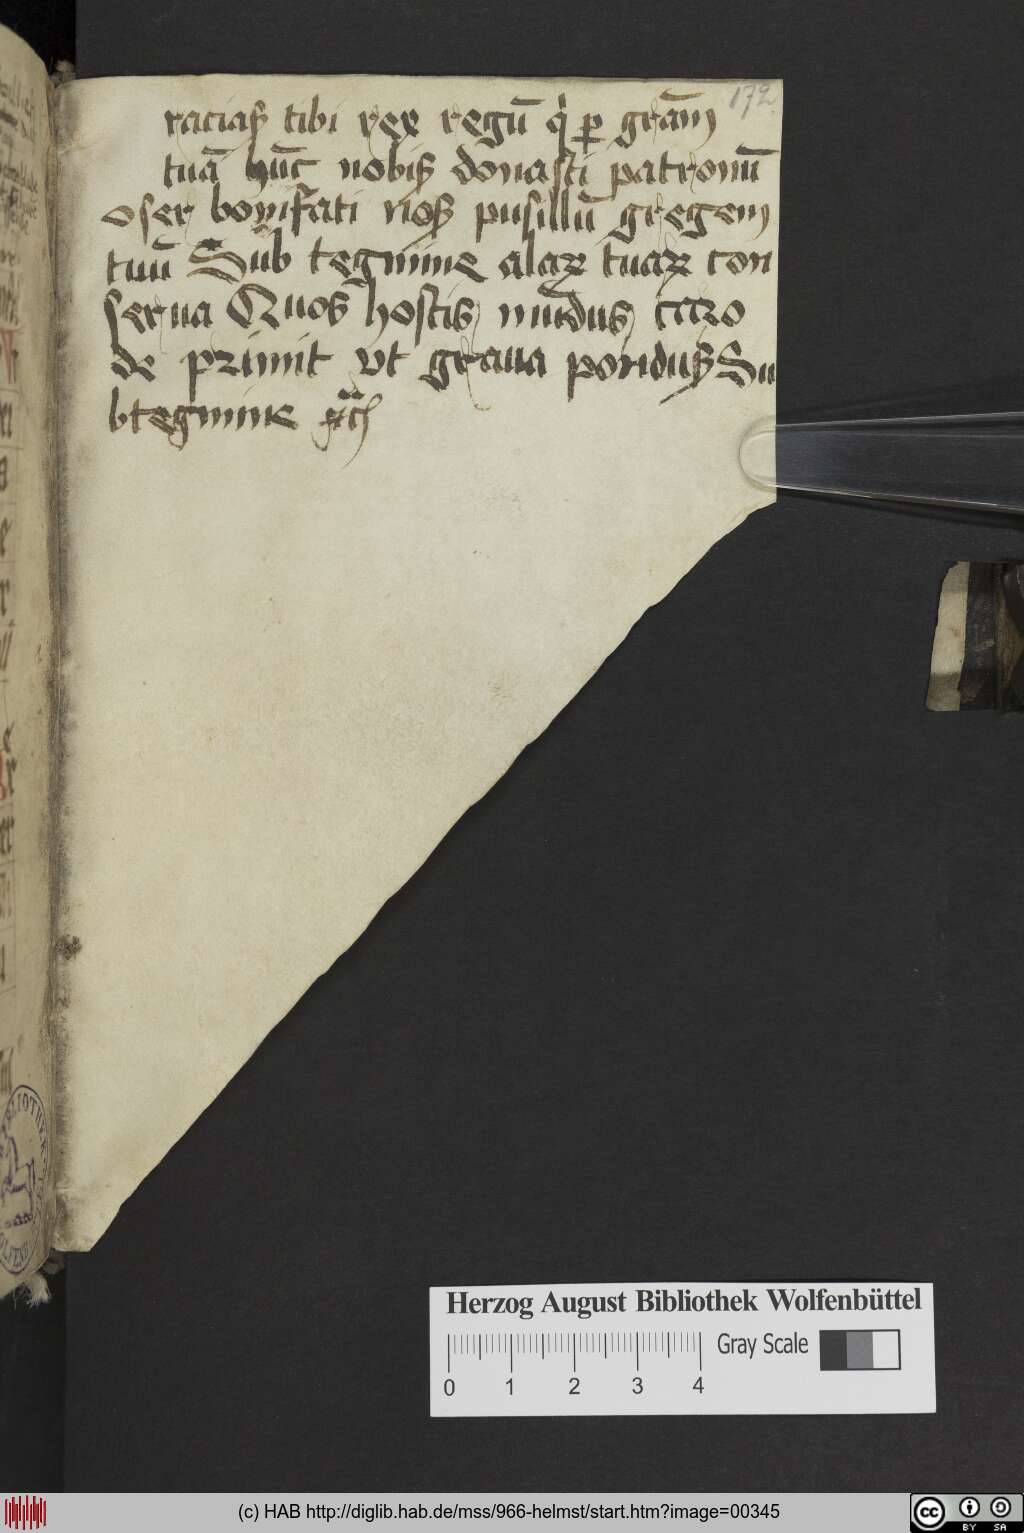 172
racias tibi rex regū qͥ ꝑ grām
tuā hūc nobis donasti patronū
o ser bonifati nos pusillū gregem
tuū Sub tegmine alaꝝ tuaꝝ con
serua Quos hostis mūdus caro
de primit vt graua pondus Su
btegmine
Herzog August Bibliothek Wolfenbüttel
Gray Scale
0 1 2 3 4
(c) HAB http://diglib.hab.de/mss/966-helmst/start.htm?image=00345
cc BY SA